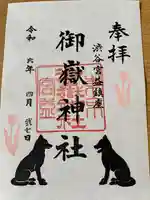 奉拝
渋谷宮益坂鎮座
御嶽神社
令和六年四月
七日